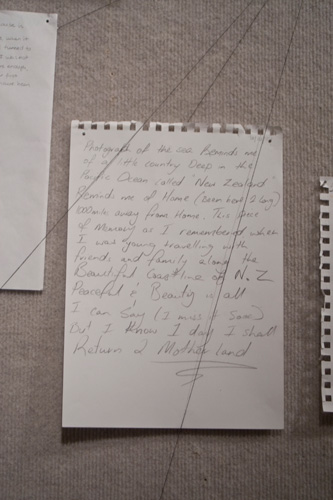 Photograph of the sea Reminds me
of a little country Deep in the
Pacific Ocean called 'New Zealand'
Reminds me of Home (been here 2 long)
1000miles away from Home. This piece
of Memory as I remembered when
I was young travelling with
friends and family along the
Beautiful Coastline of N.Z
Peaceful & Beauty is all
I can Say (I miss it Sooo)
But I Know 1 day I shall
Return 2 Mother land